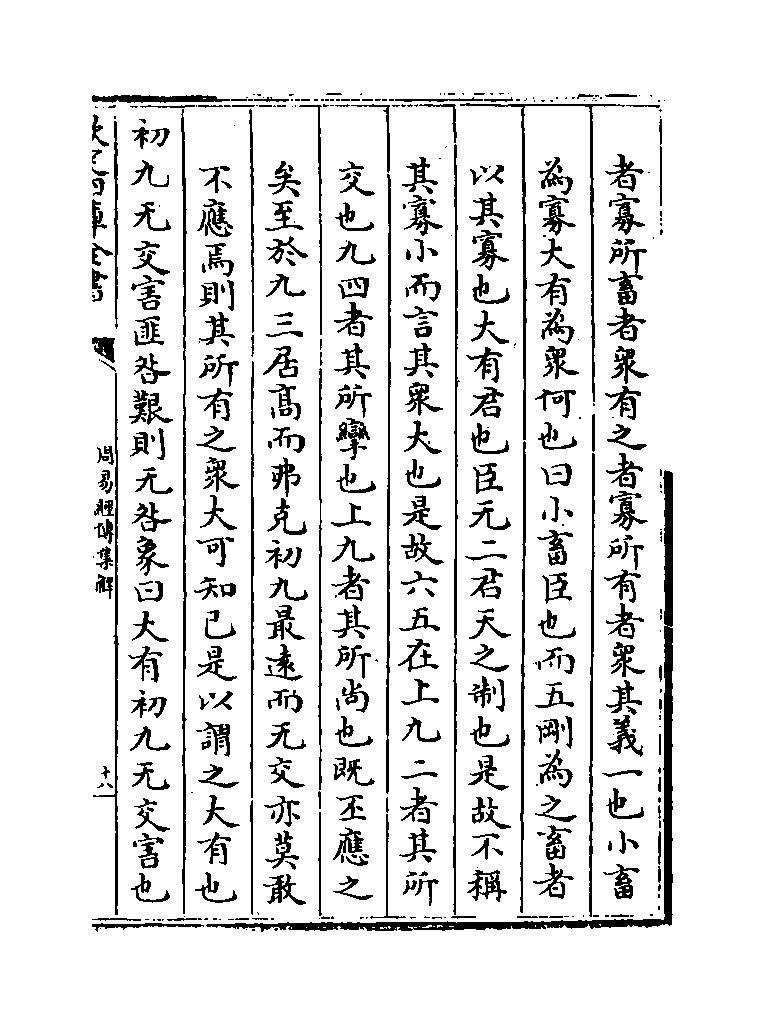 者寡所畜者衆有之者寡所有者衆其義一也小畜
為寡大有為衆何也曰小畜臣也而五剛為之畜者
以其寡也大有君也臣无二君天之制也是故不稱
其寡小而言其衆大也是故六五在上九二者其所
交也九四者其所孿也上九者其所尚也既丕應之
矣至於九三居髙而弗克初九最逺而无交亦莫敢
不應焉則其所有之衆大可知已是以謂之大有也
初九无交害匪咎艱則无咎象曰大有初九无交害也
欽定四庫全書
周易經傳集解
十八